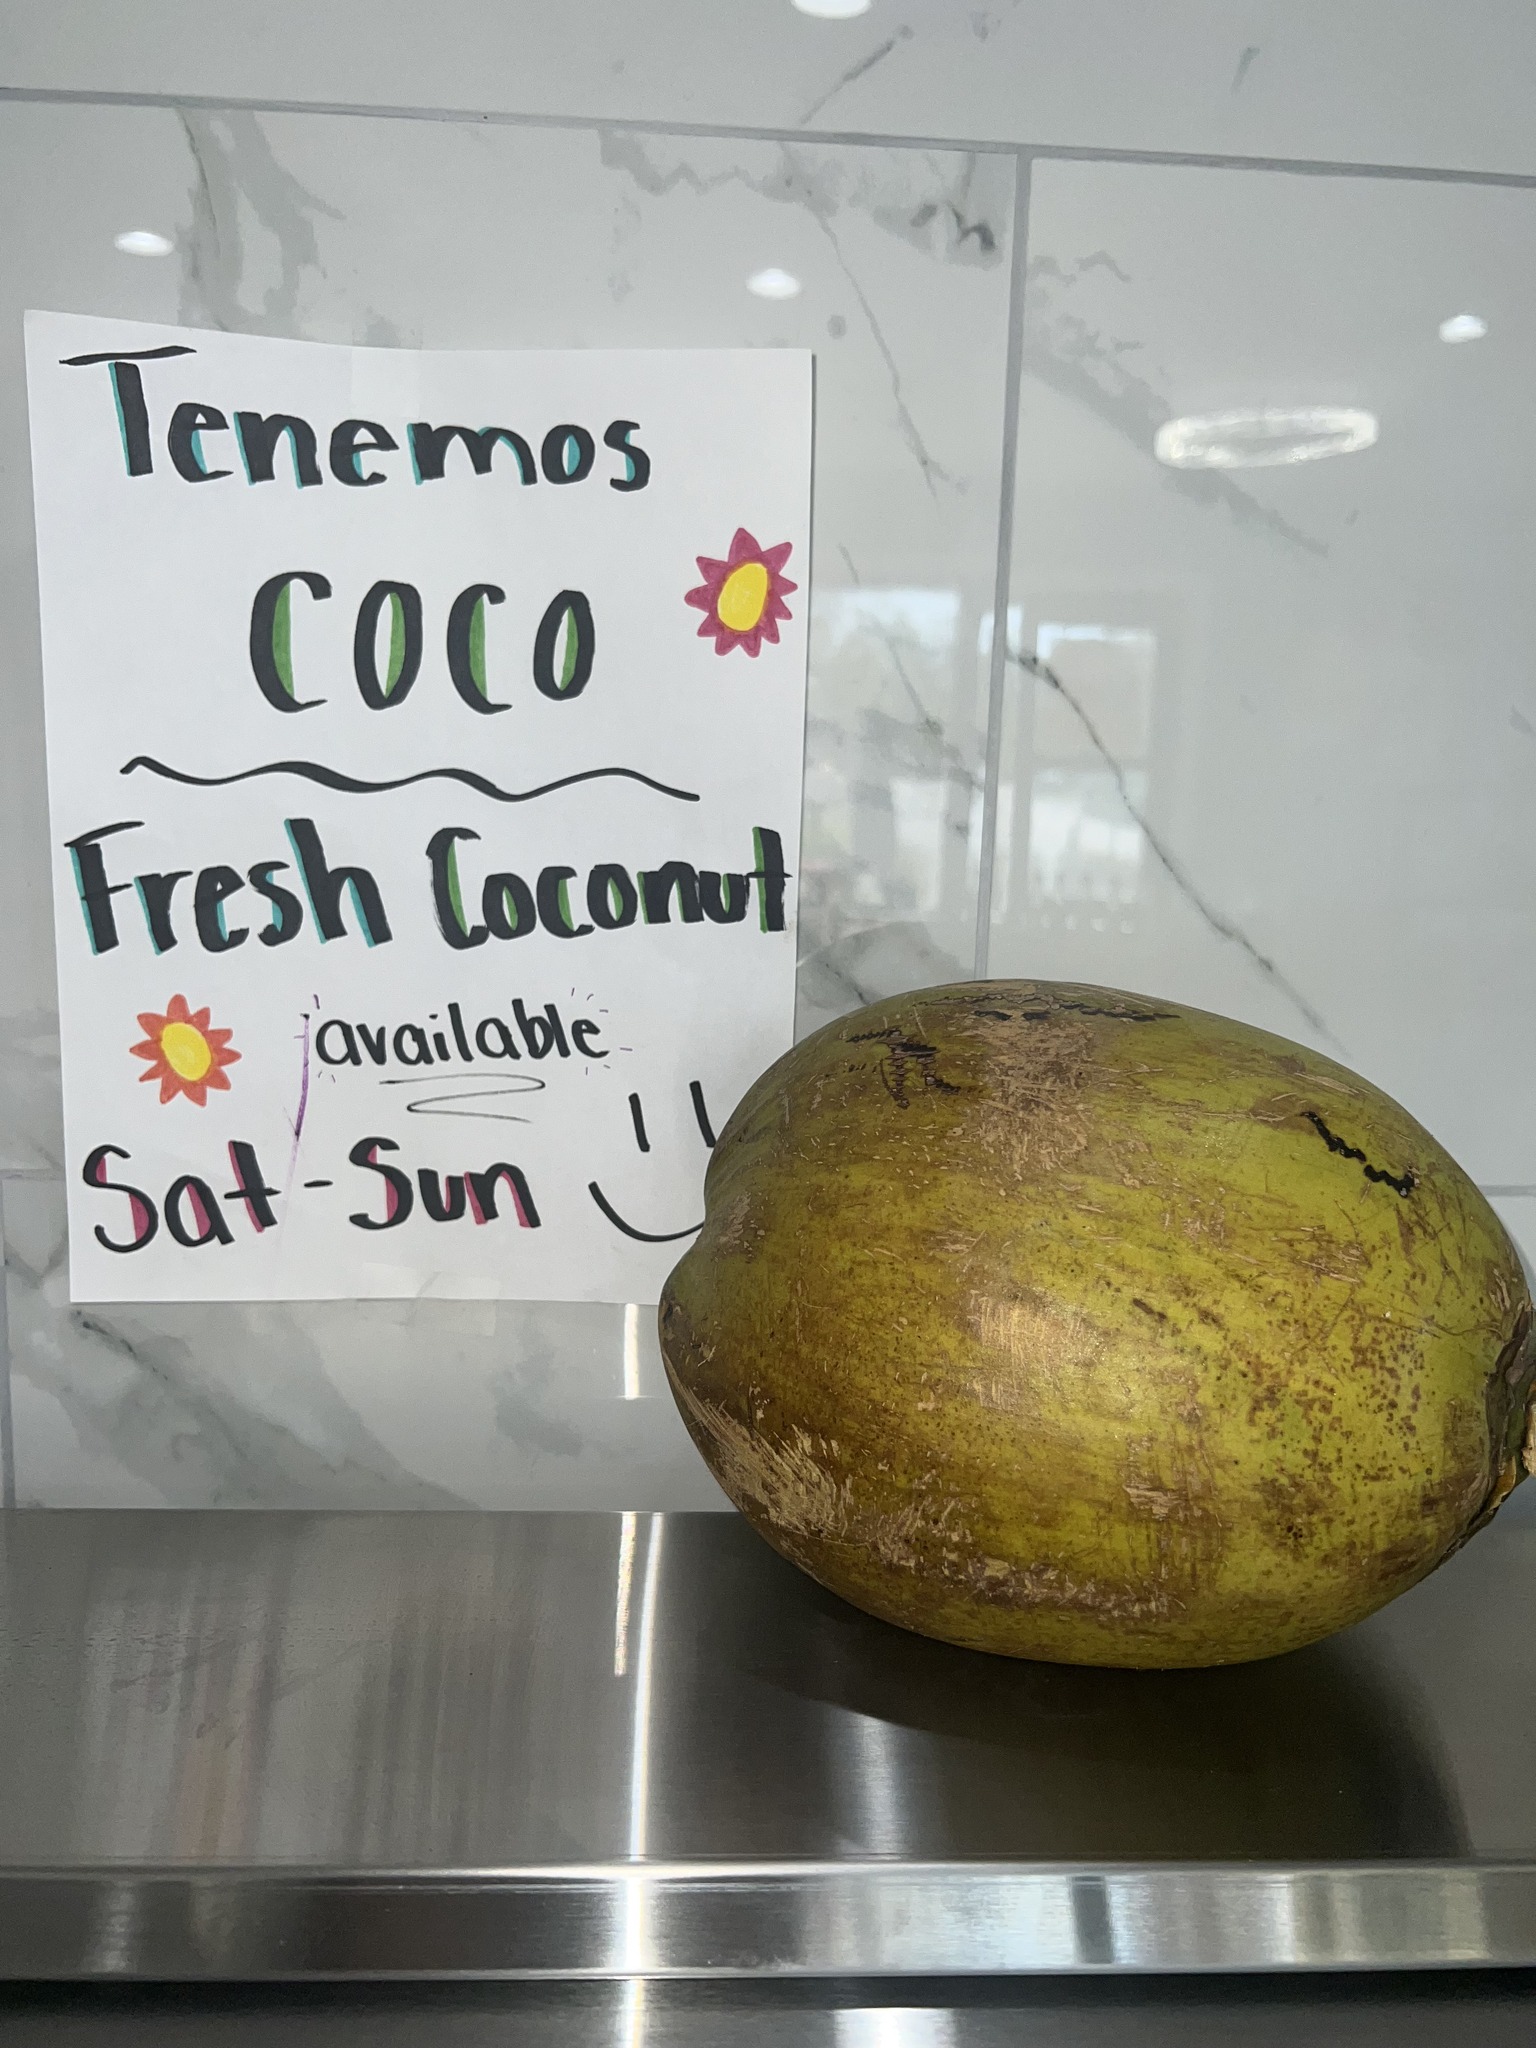 Tenemos
COCO
Fresh Coconut
available
Sat-Sun